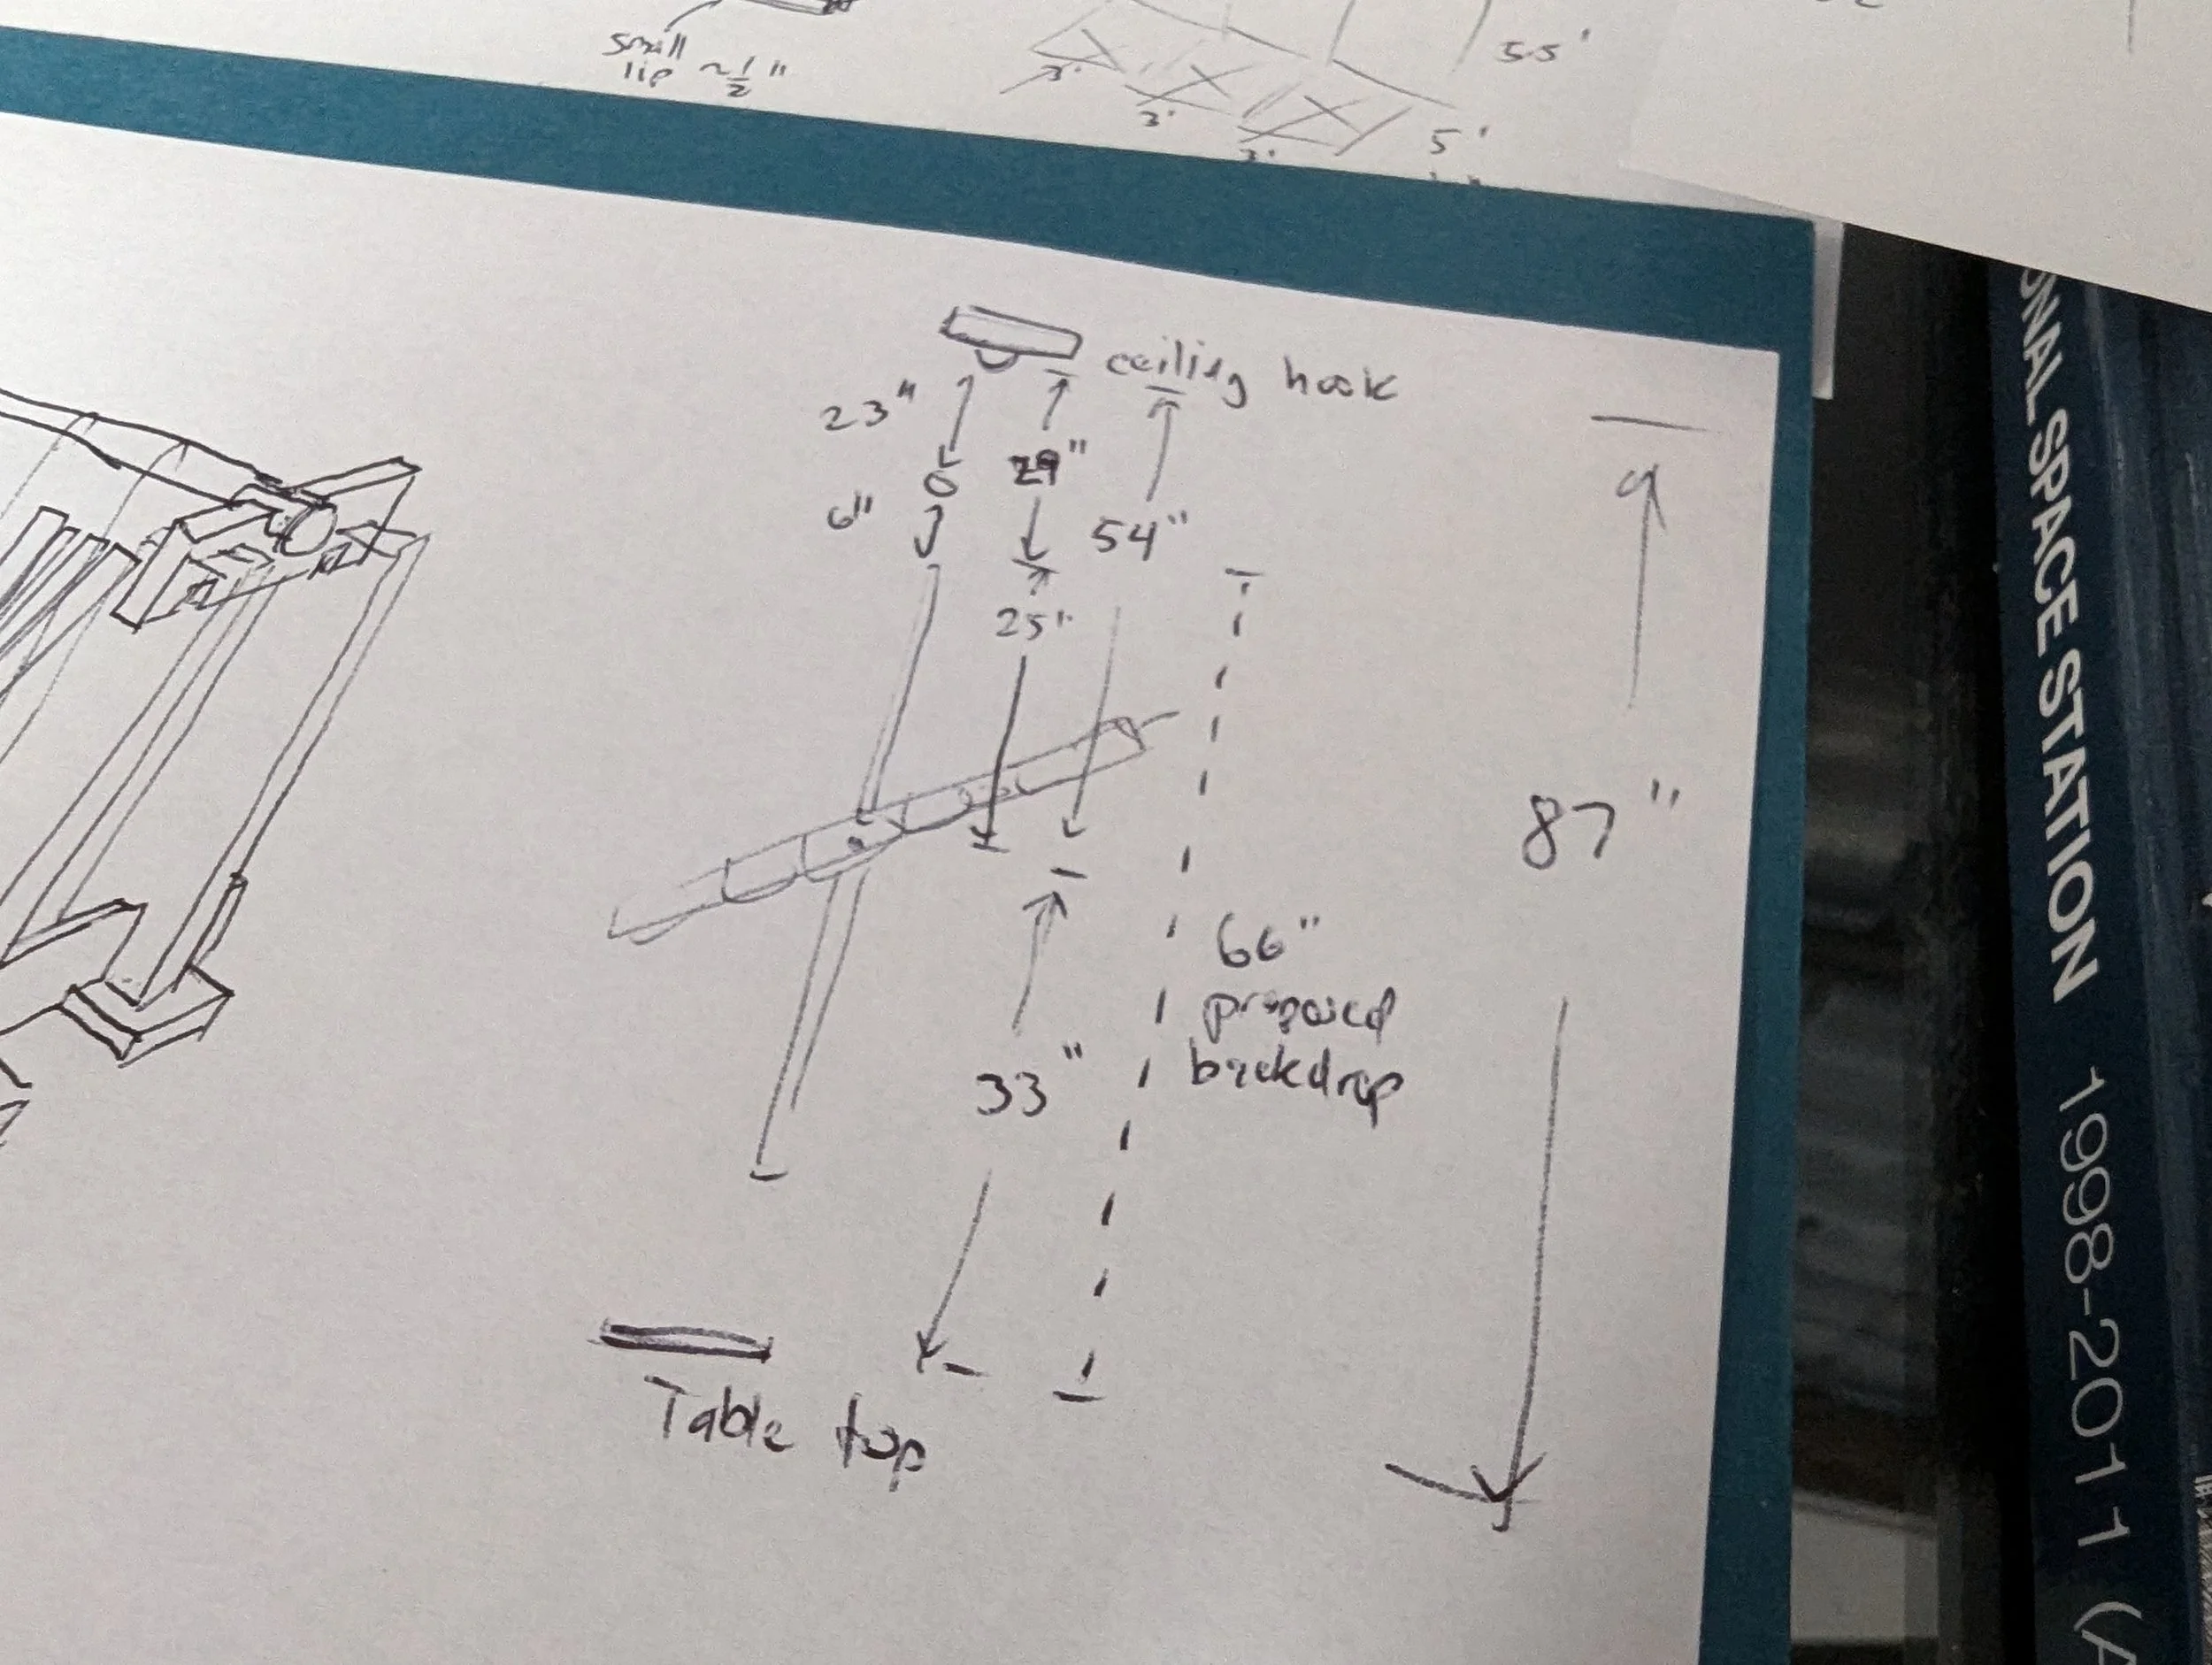 small
lip ~½"
3'
3'
3'
55'
5'
ceiling hook
23"
29"
6"
54"
25"
87"
66"
proposed
backdrop
33"
Table top
ONAL SPACE STATION 1998-2011 (A